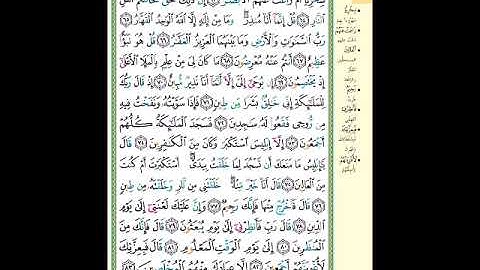 سِخْرِيًّا أَمْ زَاغَتْ عَنْهُمُ ٱلْأَبْصَٰرُ ٦٣ إِنَّ ذَٰلِكَ لَحَقٌّ تَخَاصُمُ أَهْلِ
ٱلنَّارِ ٦٤ قُلْ إِنَّمَآ أَنَا۠ مُنذِرٌ ۖ وَمَا مِنْ إِلَٰهٍ إِلَّا ٱللَّهُ ٱلْوَٰحِدُ ٱلْقَهَّارُ ٦٥
رَبُّ ٱلسَّمَٰوَٰتِ وَٱلْأَرْضِ وَمَا بَيْنَهُمَا ٱلْعَزِيزُ ٱلْغَفَّٰرُ ٦٦ قُلْ هُوَ نَبَؤٌا۟
عَظِيمٌ ٦٧ أَنتُمْ عَنْهُ مُعْرِضُونَ ٦٨ مَا كَانَ لِىَ مِنْ عِلْمٍۭ بِٱلْمَلَإِ ٱلْأَعْلَىٰٓ
إِذْ يَخْتَصِمُونَ ٦٩ إِن يُوحَىٰٓ إِلَىَّ إِلَّآ أَنَّمَآ أَنَا۠ نَذِيرٌ مُّبِينٌ ٧٠ إِذْ قَالَ رَبُّكَ
لِلْمَلَٰٓئِكَةِ إِنِّى خَٰلِقٌۢ بَشَرًا مِّن طِينٍ ٧١ فَإِذَا سَوَّيْتُهُۥ وَنَفَخْتُ فِيهِ
مِن رُّوحِى فَقَعُوا۟ لَهُۥ سَٰجِدِينَ ٧٢ فَسَجَدَ ٱلْمَلَٰٓئِكَةُ كُلُّهُمْ
أَجْمَعُونَ ٧٣ إِلَّآ إِبْلِيسَ ٱسْتَكْبَرَ وَكَانَ مِنَ ٱلْكَٰفِرِينَ ٧٤ قَالَ
يَٰٓإِبْلِيسُ مَا مَنَعَكَ أَن تَسْجُدَ لِمَا خَلَقْتُ بِيَدَىَّ ۖ أَسْتَكْبَرْتَ أَمْ كُنتَ
مِنَ ٱلْعَالِينَ ٧٥ قَالَ أَنَا۠ خَيْرٌ مِّنْهُ ۖ خَلَقْتَنِى مِن نَّارٍ وَخَلَقْتَهُۥ مِن طِينٍ
٧٦ قَالَ فَٱخْرُجْ مِنْهَا فَإِنَّكَ رَجِيمٌ ٧٧ وَإِنَّ عَلَيْكَ لَعْنَتِىٓ إِلَىٰ يَوْمِ
ٱلدِّينِ ٧٨ قَالَ رَبِّ فَأَنظِرْنِىٓ إِلَىٰ يَوْمِ يُبْعَثُونَ ٧٩ قَالَ فَإِنَّكَ مِنَ
ٱلْمُنظَرِينَ ٨٠ إِلَىٰ يَوْمِ ٱلْوَقْتِ ٱلْمَعْلُومِ ٨١ قَالَ فَبِعِزَّتِكَ
لَأُغْوِيَنَّهُمْ أَجْمَعِينَ ٨٢ إِلَّا عِبَادَكَ مِنْهُمُ ٱلْمُخْلَصِينَ ٨٣